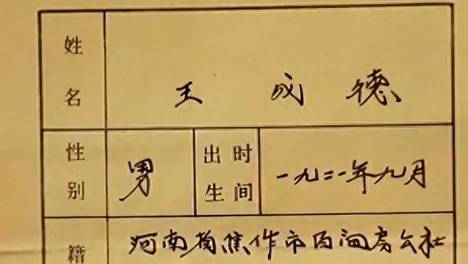 姓名 王成德
性别 男 出生时间 一九二一年九月
籍 河南省焦作市百间房公社